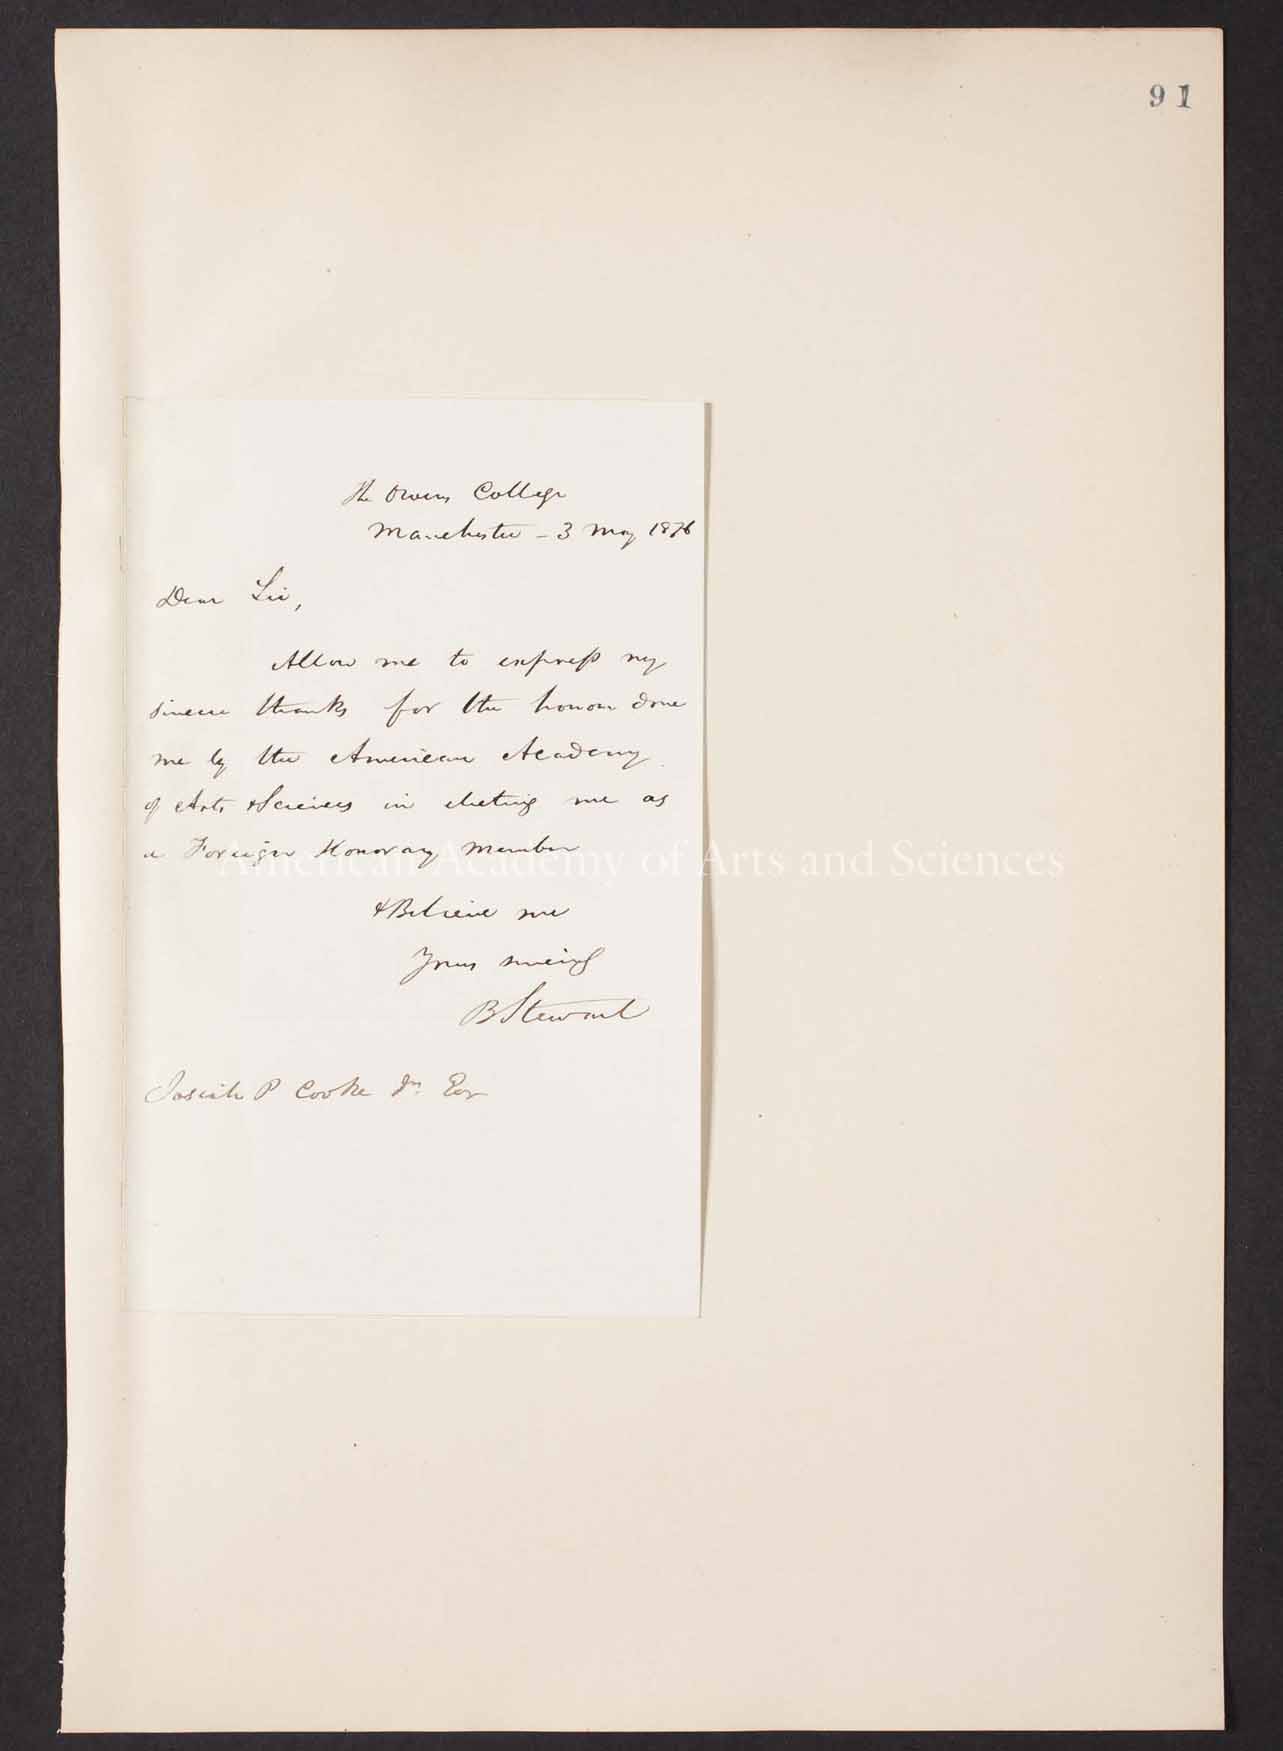 91
The Owens College
Manchester - 3 May 1876
Dear Sir,
Allow me to express my
sincere thanks for the honour done
me by the American Academy
of Arts & Sciences in electing me as
a Foreign Honorary Member
American Academy of Arts and Sciences
& Believe me
Yours sincerely
B Stewart
Josiah P Cooke Jr. Esq